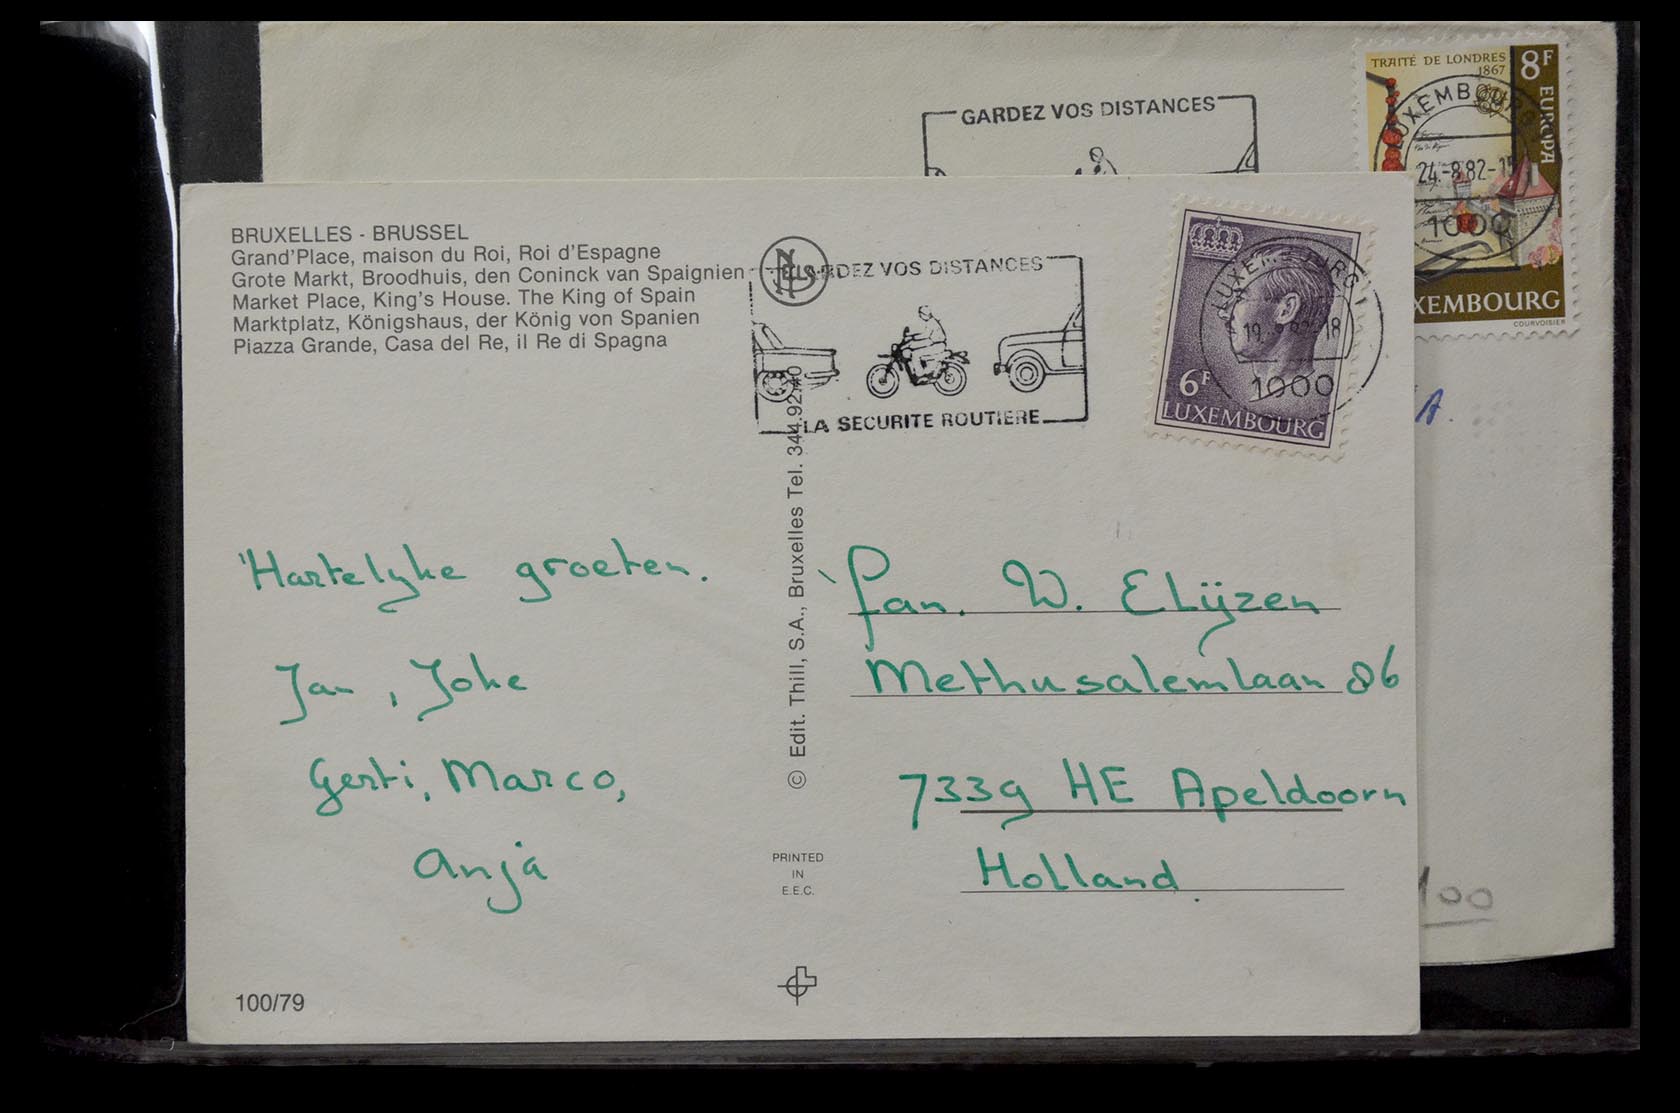 TRAITÉ DE LONDRES
1867
8F
EUROPA
LUXEMBOURG
24.-8.82-15
1000
XEMBOURG
COURVOISIER
GARDEZ VOS DISTANCES
A.
100
BRUXELLES - BRUSSEL
Grand'Place, maison du Roi, Roi d'Espagne
Grote Markt, Broodhuis, den Coninck van Spaignien
Market Place, King's House. The King of Spain
Marktplatz, Königshaus, der König von Spanien
Piazza Grande, Casa del Re, il Re di Spagna
NELS
RDEZ VOS DISTANCES
LA SECURITE ROUTIERE
LUXEMBOURG
1000
6F
LUXEMBOURG
Hartelyke groeten.
Jan, Joke
Gerti, Marco,
Anja
© Edit. Thill, S.A., Bruxelles Tel. 344.92.40
PRINTED
IN
E.E.C.
Fam. W. Elijzen
Methusalemlaan 86
7339 HE Apeldoorn
Holland
100/79